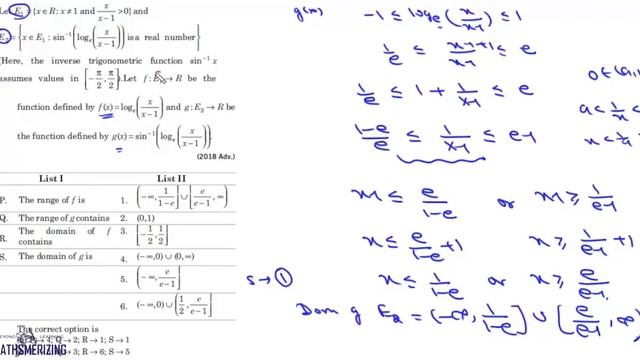 Let E₁ = {x ∈ R: x ≠ 1 and x/(x−1) > 0} and
E₂ = {x ∈ E₁ : sin⁻¹(logₑ(x/(x−1))) is a real number}
(Here, the inverse trigonometric function sin⁻¹ x
assumes values in [−π/2, π/2].) Let f : E₁ → R be the
function defined by f(x) = logₑ(x/(x−1)) and g : E₂ → R be
the function defined by g(x) = sin⁻¹(logₑ(x/(x−1))).
(2018 Adv.)
List I List II
P. The range of f is 1. (−∞, 1/(1−e)] ∪ [e/(e−1), ∞)
Q. The range of g contains 2. (0,1)
R. The domain of f contains 3. [−1/2, 1/2]
S. The domain of g is 4. (−∞,0) ∪ (0,∞)
5. (−∞, e/(e−1)]
6. (−∞,0) ∪ (1/2, e/(e−1)]
The correct option is
4; Q → 2; R → 1; S → 1
3; R → 6; S → 5
ATHSMERIZING
g(x) −1 ≤ logₑ(x/(x−1)) ≤ 1
1/e ≤ (x−1+1)/(x−1) ≤ e
1/e ≤ 1 + 1/(x−1) ≤ e
(1−e)/e ≤ 1/(x−1) ≤ e−1
x−1 ≤ e/(1−e) or x−1 ≥ 1/(e−1)
x ≤ e/(1−e) + 1 or x ≥ 1/(e−1) + 1
s → ① x ≤ 1/(1−e) or x ≥ e/(e−1)
Dom g E₂ = (−∞, 1/(1−e)] ∪ [e/(e−1), ∞)